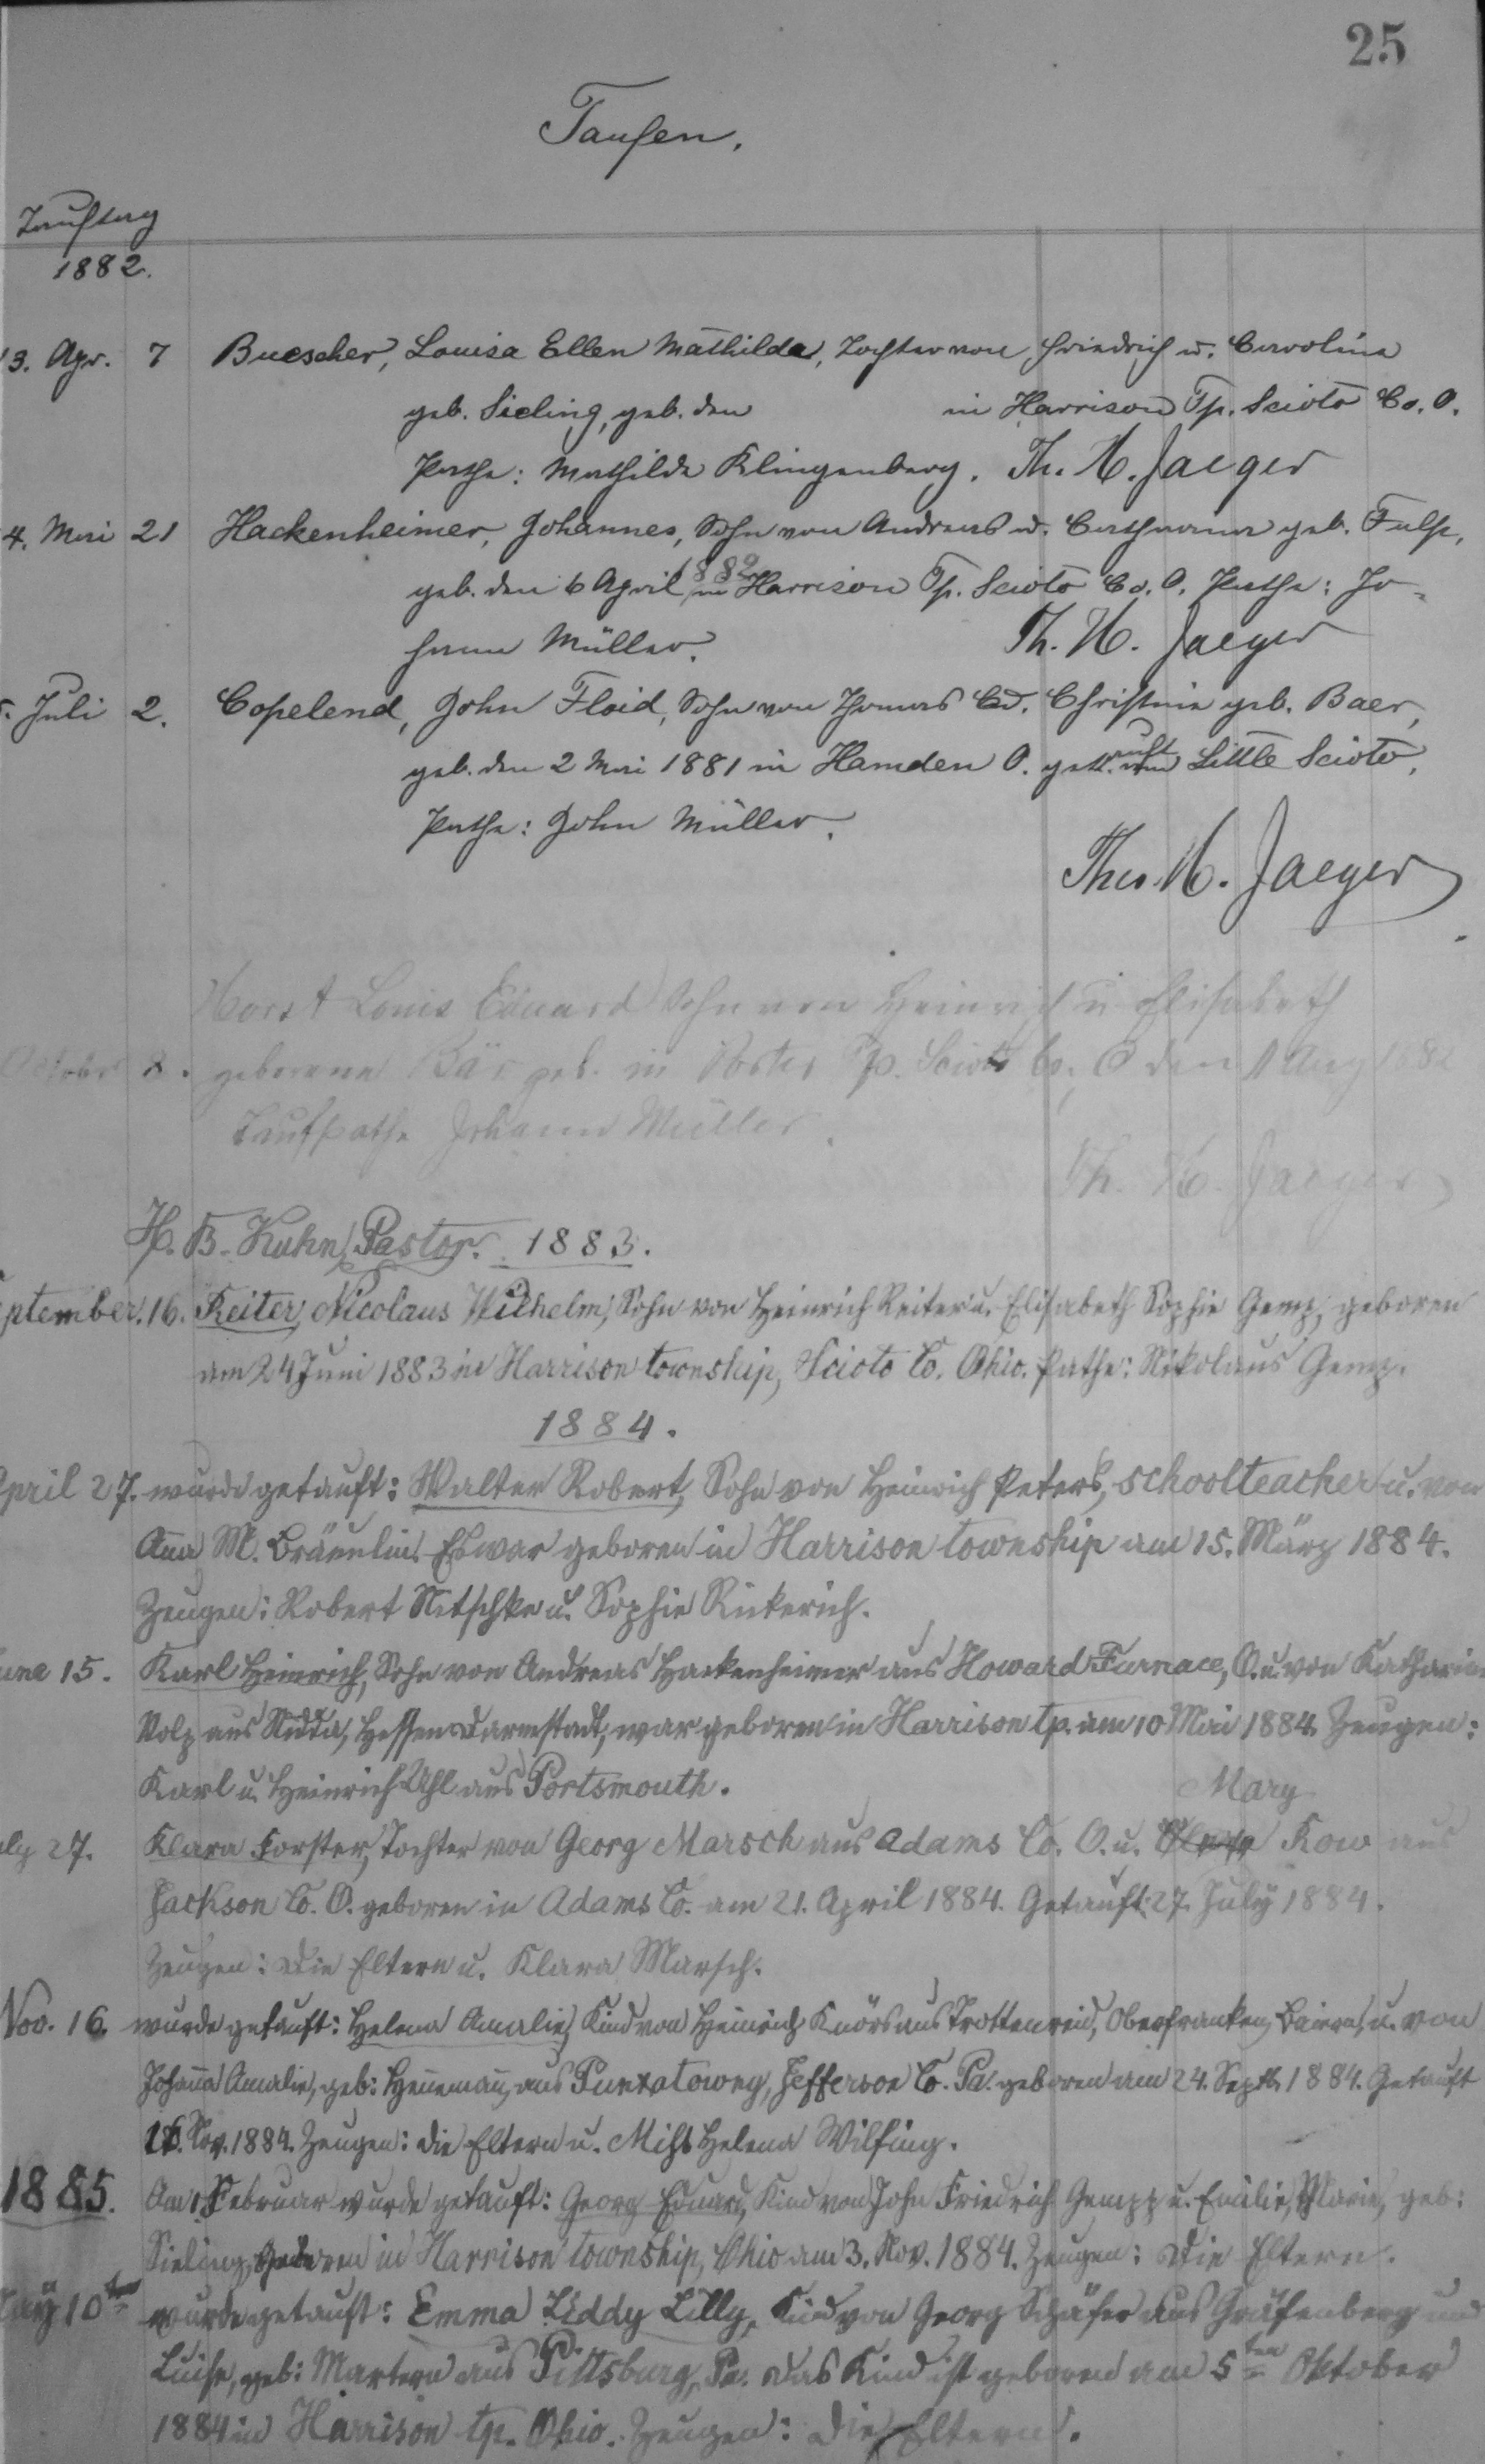 25
Taufen.
Tauftag
1882.
3. Apr. 7 Buescher, Louisa Ellen Mathilda, Tochter von Friedrich u. Carolina
geb. Sieling, geb. den in Harrison Tp. Scioto Co. O.
Pathe: Mathilde Klingenberg. Th. H. Jaeger
4. Mai 21 Hackenheimer, Johannes, Sohn von Andreas u. Catharina geb. Fulp,
geb. den 6 April 1882 in Harrison Tp. Scioto Co. O. Pathe: Jo-
hann Müller. Th. H. Jaeger
5. Juli 2. Copelend, John Floid, Sohn von Thomas Ed. Christina geb. Baer,
geb. den 2 Mai 1881 in Hamden O. getauft am Little Scioto.
Pathe: John Müller.
Theo. H. Jaeger
Horst Louis Eduard Sohn von Heinrich u. Elisabeth
October 8. geborene Bär geb. in Porter Tp. Scioto Co, O den 1 Aug 1882
Taufpathe Johann Müller.
Th. H. Jaeger
H. B. Kuhn, Pastor. 1883.
ptember. 16. Reiter, Nicolaus Wilhelm, Sohn von Heinrich Reiter u. Elisabeth Sophie Gemp, geboren
am 24 Juni 1883 in Harrison township, Scioto Co. Ohio. Pathe: Nikolaus Gemp.
1884.
April 27. wurde getauft: Walter Robert, Sohn von Heinrich Peters, schoolteacher u. von
Anna M. Bräunlin. Es war geboren in Harrison township am 15. März 1884.
Zeugen: Robert Nitschke u. Sophie Rickerich.
une 15. Karl Heinrich, Sohn von Andreas Hackenheimer aus Howard Furnace, O. u. von Katharine
Volz aus Nidda, Hessen Darmstadt, war geboren in Harrison tp. am 10 Mai 1884. Zeugen:
Karl u. Heinrich Uhl aus Portsmouth.
Mary
uly 27. Klara Forster, Tochter von Georg Marsch aus Adams Co. O. u. Klara Kow aus
Jackson Co. O. geboren in Adams Co. am 21. April 1884. Getauft 27. July 1884.
Zeugen: Die Eltern u. Klara Marsch.
Nov. 16. wurde getauft: Helena Amalie, Kind von Heinrich Knörs aus Trottenreid, Oberfranken, Baiern, u. von
Johanna Amalie, geb: Hennemann, aus Punxatowny, Jefferson Co. Pa. geboren am 24. Septb. 1884. Getauft
16. Nov. 1884. Zeugen: Die Eltern u. Miss Helena Wilfing.
1885. Am 1 Februar wurde getauft: Georg Eduard, Kind von John Friedrich Gempp u. Emilie, Marie, geb:
Sieling, geboren in Harrison township, Ohio am 3. Nov. 1884. Zeugen: Die Eltern.
May 10ten wurde getauft: Emma Liddy Lilly, Kind von Georg Schäfer aus Gräfenberg und
Luise, geb: Martern aus Pittsburg, Pa. Das Kind ist geboren am 5ten Oktober
1884 in Harrison tp. Ohio. Zeugen: Die Eltern.